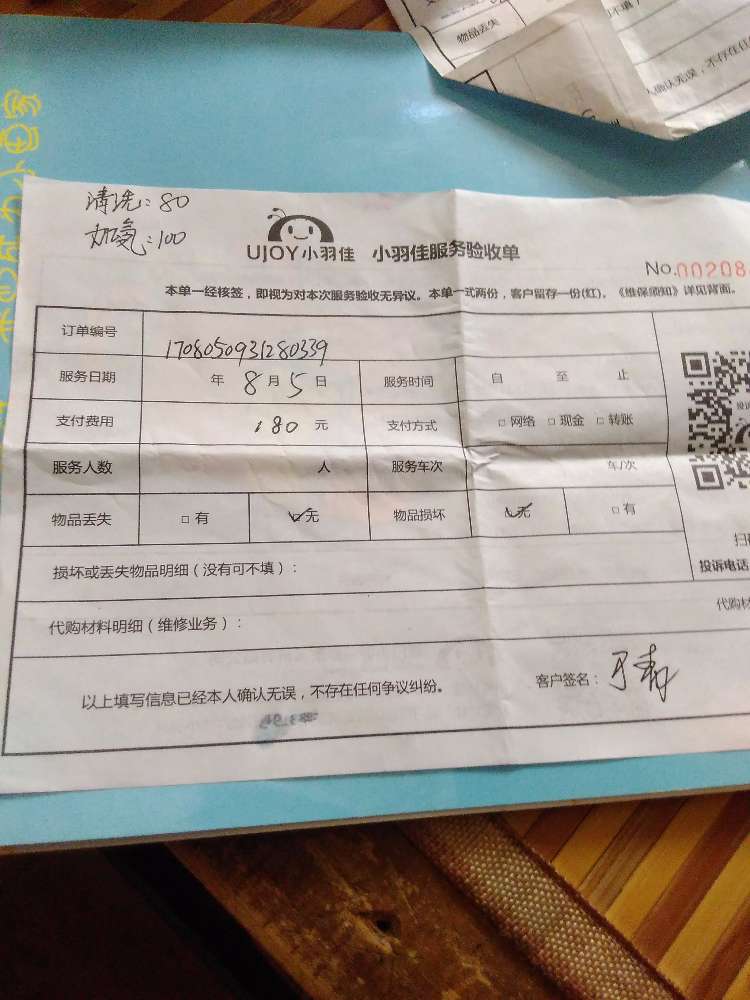 物品丢失
清洗：80
加氨：100
UJOY小羽佳 小羽佳服务验收单
No.00208
本单一经核签，即视为对本次服务验收无异议。本单一式两份，客户留存一份(红)。《维保须知》详见背面。
订单编号 1708050931280339
服务日期 年 8 月 5 日 服务时间 自 至 止
支付费用 180 元 支付方式 □网络 □现金 □转账
服务人数 人 服务车次 车/次
物品丢失 □有 ☑无 物品损坏 ☑无 □有
投诉电话
损坏或丢失物品明细（没有可不填）：
代购材料明细（维修业务）：
以上填写信息已经本人确认无误，不存在任何争议纠纷。 客户签名：